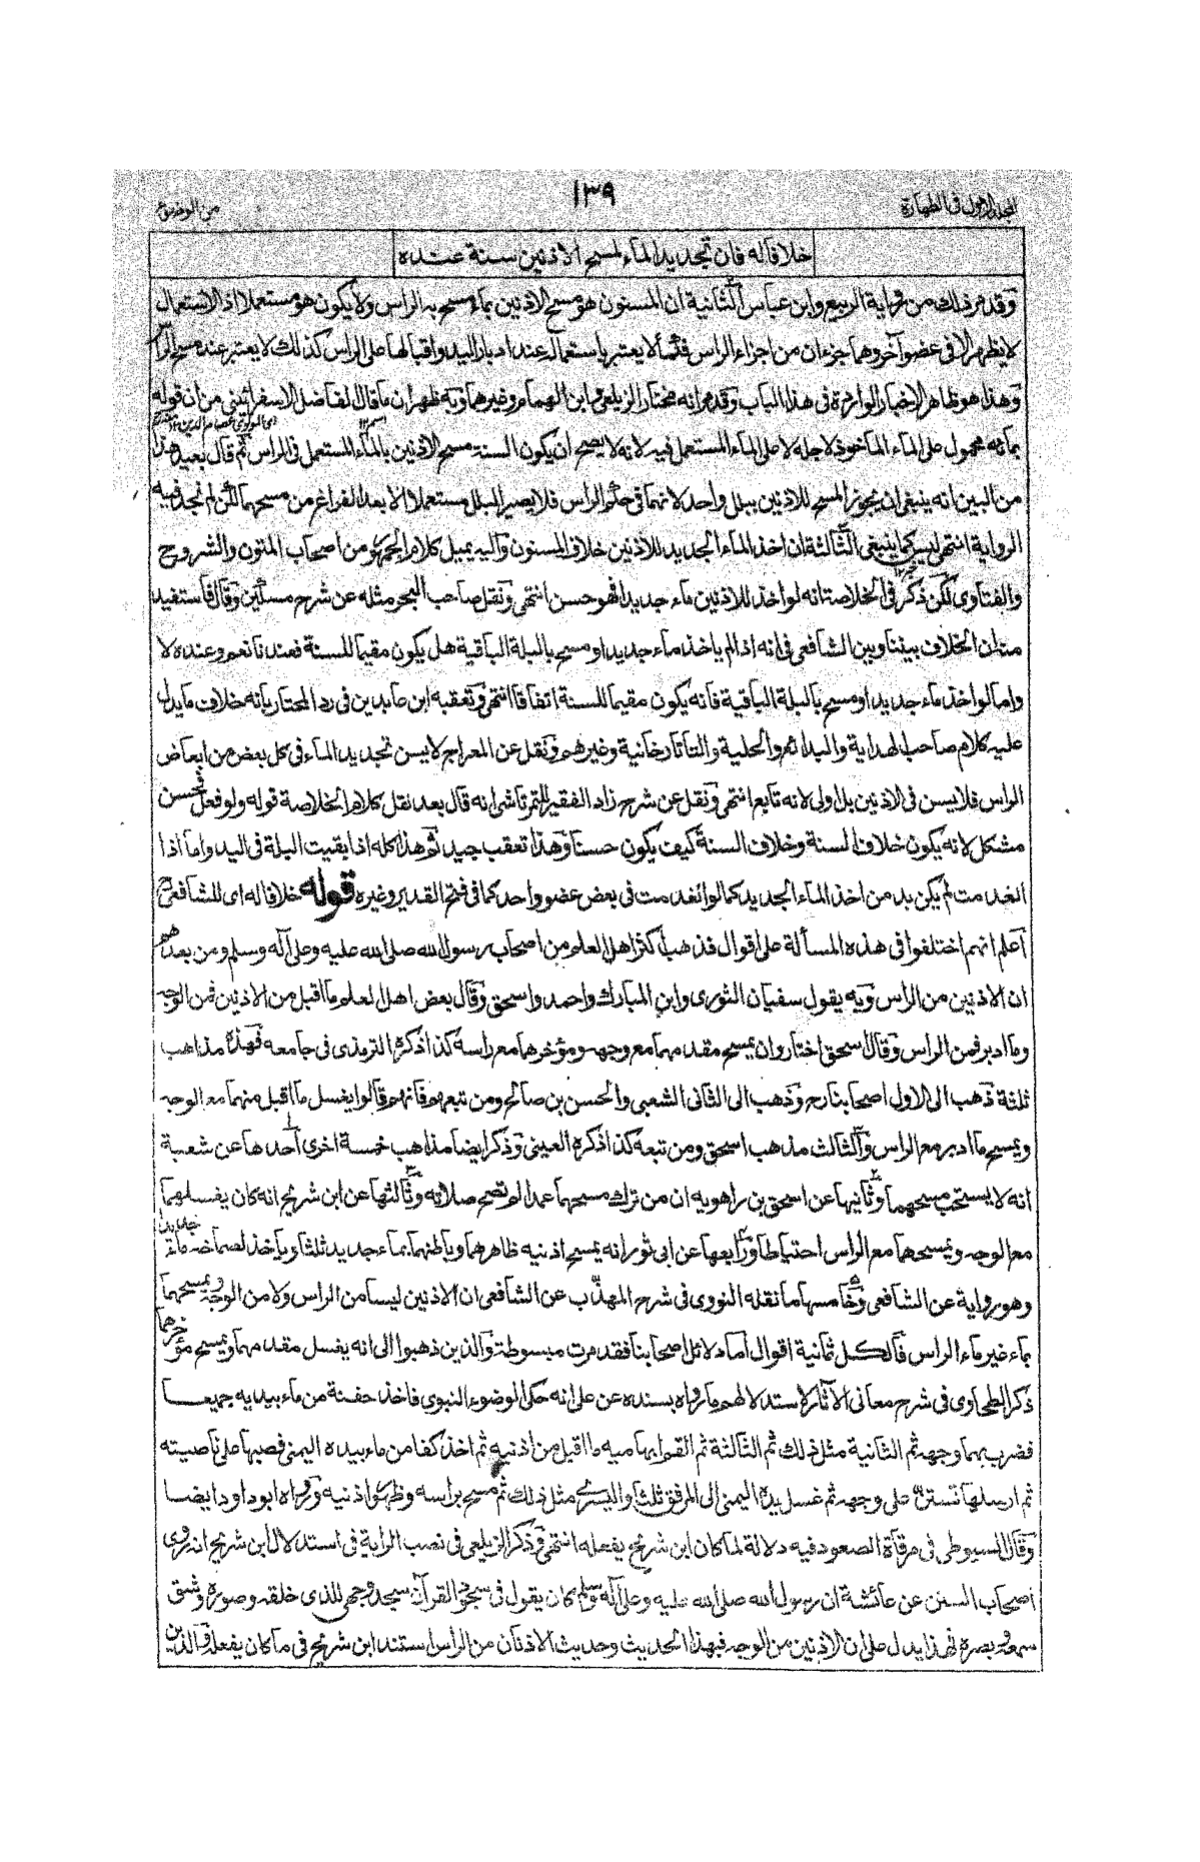 المجلد الاول فى الطهارة
١٣٩
من الوضوء
خلافا له فان تجديد الماء لمسح الاذنين سنة عنده
وقد مر ذلك من رواية الربيع وابن عباس الثانية ان المسنون هو مسح الاذنين بماء مسح به الراس ولا يكون هو مستعملا اذ الاستعمال
لا يظهر الا فى عضو آخر وهما جزءان من اجزاء الراس فكما لا يعتبر باستعماله عند ادبار اليد واقبالها على الراس كذلك لا يعتبر عند مسح
وهذا هو ظاهر الاخبار الواردة فى هذا الباب وقد مر انه مختار الزيلعى وابن الهمام وغيرهما وبه ظهر ان ما قال الفاضل الاسفرائنى من ان قوله
بمائه محمول على الماء الماخوذ لاجله لا على الماء المستعمل فيه لانه لا يصح ان يكون السنة مسح الاذنين بالماء المستعمل فى الراس ثم قال بعيد هذا
من البين انه ينبغى ان يجوز المسح للاذنين ببلل واحد لانهما فى حكم الراس فلا يصير البلل مستعملا الا بعد الفراغ من مسحهما لكن لم نجد فيه
الرواية انتهى ليس كما ينبغى الثالثة ان اخذ الماء الجديد للاذنين خلاف المسنون واليه يميل كلام الجمهور من اصحاب المتون والشروح
والفتاوى لكن ذكر فى الخلاصة انه لو اخذ للاذنين ماء جديدا فهو حسن انتهى ونقل صاحب البحر مثله عن شرح مسكين وقال فاستفيد
منه ان الخلاف بيننا وبين الشافعى فى انه اذا لم ياخذ ماء جديدا ومسح بالبلة الباقية هل يكون مقيما للسنة فعندنا نعم وعنده لا
واما لو اخذ ماء جديدا ومسح بالبلة الباقية فانه يكون مقيما للسنة اتفاقا انتهى وتعقبه ابن عابدين فى رد المحتار بانه خلاف ما يدل
عليه كلام صاحب الهداية والبدائع والحلية والتاتارخانية وغيرهم ونقل عن المعراج لا يسن تجديد الماء فى كل بعض من ابعاض
الراس فلا يسن فى الاذنين بل اولى لانه تابع انتهى ونقل عن شرح زاد الفقير للتمرتاشى انه قال بعد نقل كلام الخلاصة قوله ولو فعل فحسن
مشكل لانه يكون خلاف السنة وخلاف السنة كيف يكون حسنا وهذا تعقب جيد ثم هذا كله اذا بقيت البلة فى اليد واما اذا
انعدمت لم يكن بد من اخذ الماء الجديد كما لو انعدمت فى بعض عضو واحد كما فى فتح القدير وغيره قوله خلافا له اى للشافعى
اعلم انهم اختلفوا فى هذه المسألة على اقوال فذهب اكثر اهل العلم من اصحاب رسول الله صلى الله عليه وعلى آله وسلم ومن بعدهم
ان الاذنين من الراس وبه يقول سفيان الثورى وابن المبارك واحمد واسحق وقال بعض اهل العلم ما اقبل من الاذنين فمن الوجه
وما ادبر فمن الراس وقال اسحق اختار وان يمسح مقدمهما مع وجهه ومؤخرهما مع راسه كذا ذكره الترمذى فى جامعه فهذه مذاهب
ثلثة ذهب الى الاول اصحابنا رح وذهب الى الثانى الشعبى والحسن بن صالح ومن تبعهم فانهم قالوا يغسل ما اقبل منهما مع الوجه
ويمسح ما ادبر مع الراس والثالث مذهب اسحق ومن تبعه كذا ذكره العينى وذكر ايضا مذاهب خمسة اخرى احدها عن شعبة
انه لا يستحب مسحهما وثانيها عن اسحق بن راهويه ان من ترك مسحهما عمدا لم تصح صلاته وثالثها عن ابن شريح انه كان يغسلهما
مع الوجه ويمسحها مع الراس احتياطا ورابعها عن ابى ثور انه يمسح اذنيه ظاهرهما وباطنهما بماء جديد ثلثا وياخذ لصماخه ماء جديدا
وهو رواية عن الشافعى وخامسها ما نقله النووى فى شرح المهذب عن الشافعى ان الاذنين ليسا من الراس ولا من الوجه ويمسحهما
بماء غير ماء الراس فالكل ثمانية اقوال اما دلائل اصحابنا فقد مرت مبسوطة والذين ذهبوا الى انه يغسل مقدمهما ويمسح مؤخرهما
ذكر الطحاوى فى شرح معانى الآثار لاستدلالهم ما رواه بسنده عن على انه حكى الوضوء النبوى فاخذ حفنة من ماء بيديه جميعا
فضرب بهما وجهه ثم الثانية مثل ذلك ثم الثالثة ثم القم ابهاميه ما اقبل من اذنيه ثم اخذ كفا من ماء بيده اليمنى فصبها على ناصيته
ثم ارسلها تستن على وجهه ثم غسل يده اليمنى الى المرفق ثلثا واليسرى مثل ذلك ثم مسح براسه وظهور اذنيه ورواه ابو داود ايضا
وقال السيوطى فى مرقاة الصعود فيه دلالة لما كان ابن شريح يفعله انتهى وذكر الزيلعى فى نصب الراية فى استدلال ابن شريح انه روى
اصحاب السنن عن عائشة ان رسول الله صلى الله عليه وعلى آله وسلم كان يقول فى سجود القرآن سجد وجهى للذى خلقه وصوره وشق
سمعه وبصره فهذا يدل على ان الاذنين من الوجه فبهذا الحديث وحديث الاذنان من الراس استند ابن شريح فى ما كان يفعله والذين